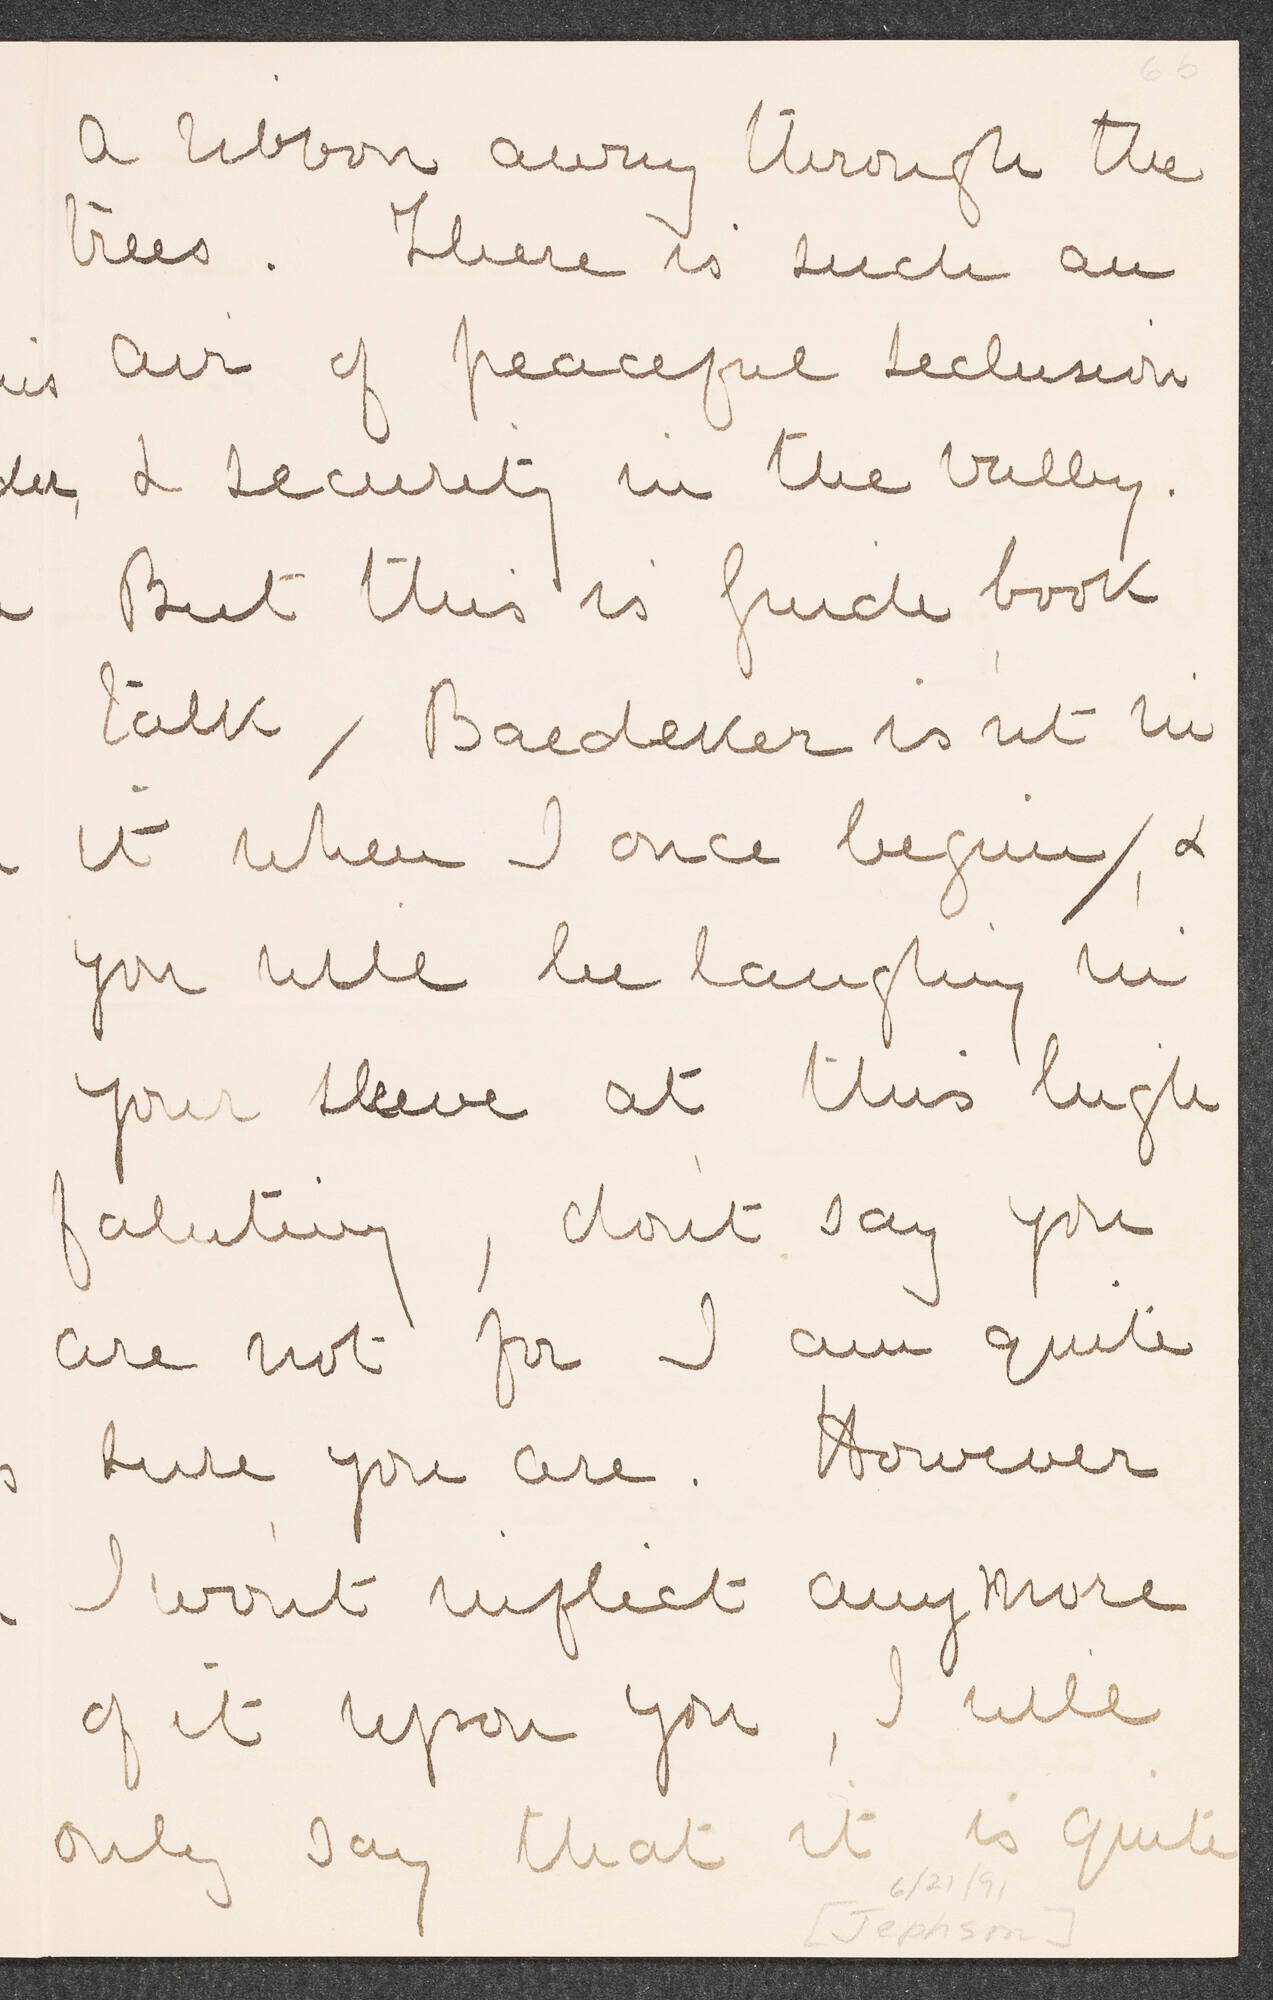 66
a ribbon away through the
trees. There is such an
air of peaceful seclusion
& security in the valley.
But this is guide book
talk / Baedeker is'nt in
it when I once begin /, &
you will be laughing in
your sleeve at this high
faluting, don't say you
are not for I am quite
sure you are. However
I won't inflict anymore
of it upon you, I will
only say that it is quite
6/21/91
[Jephson]